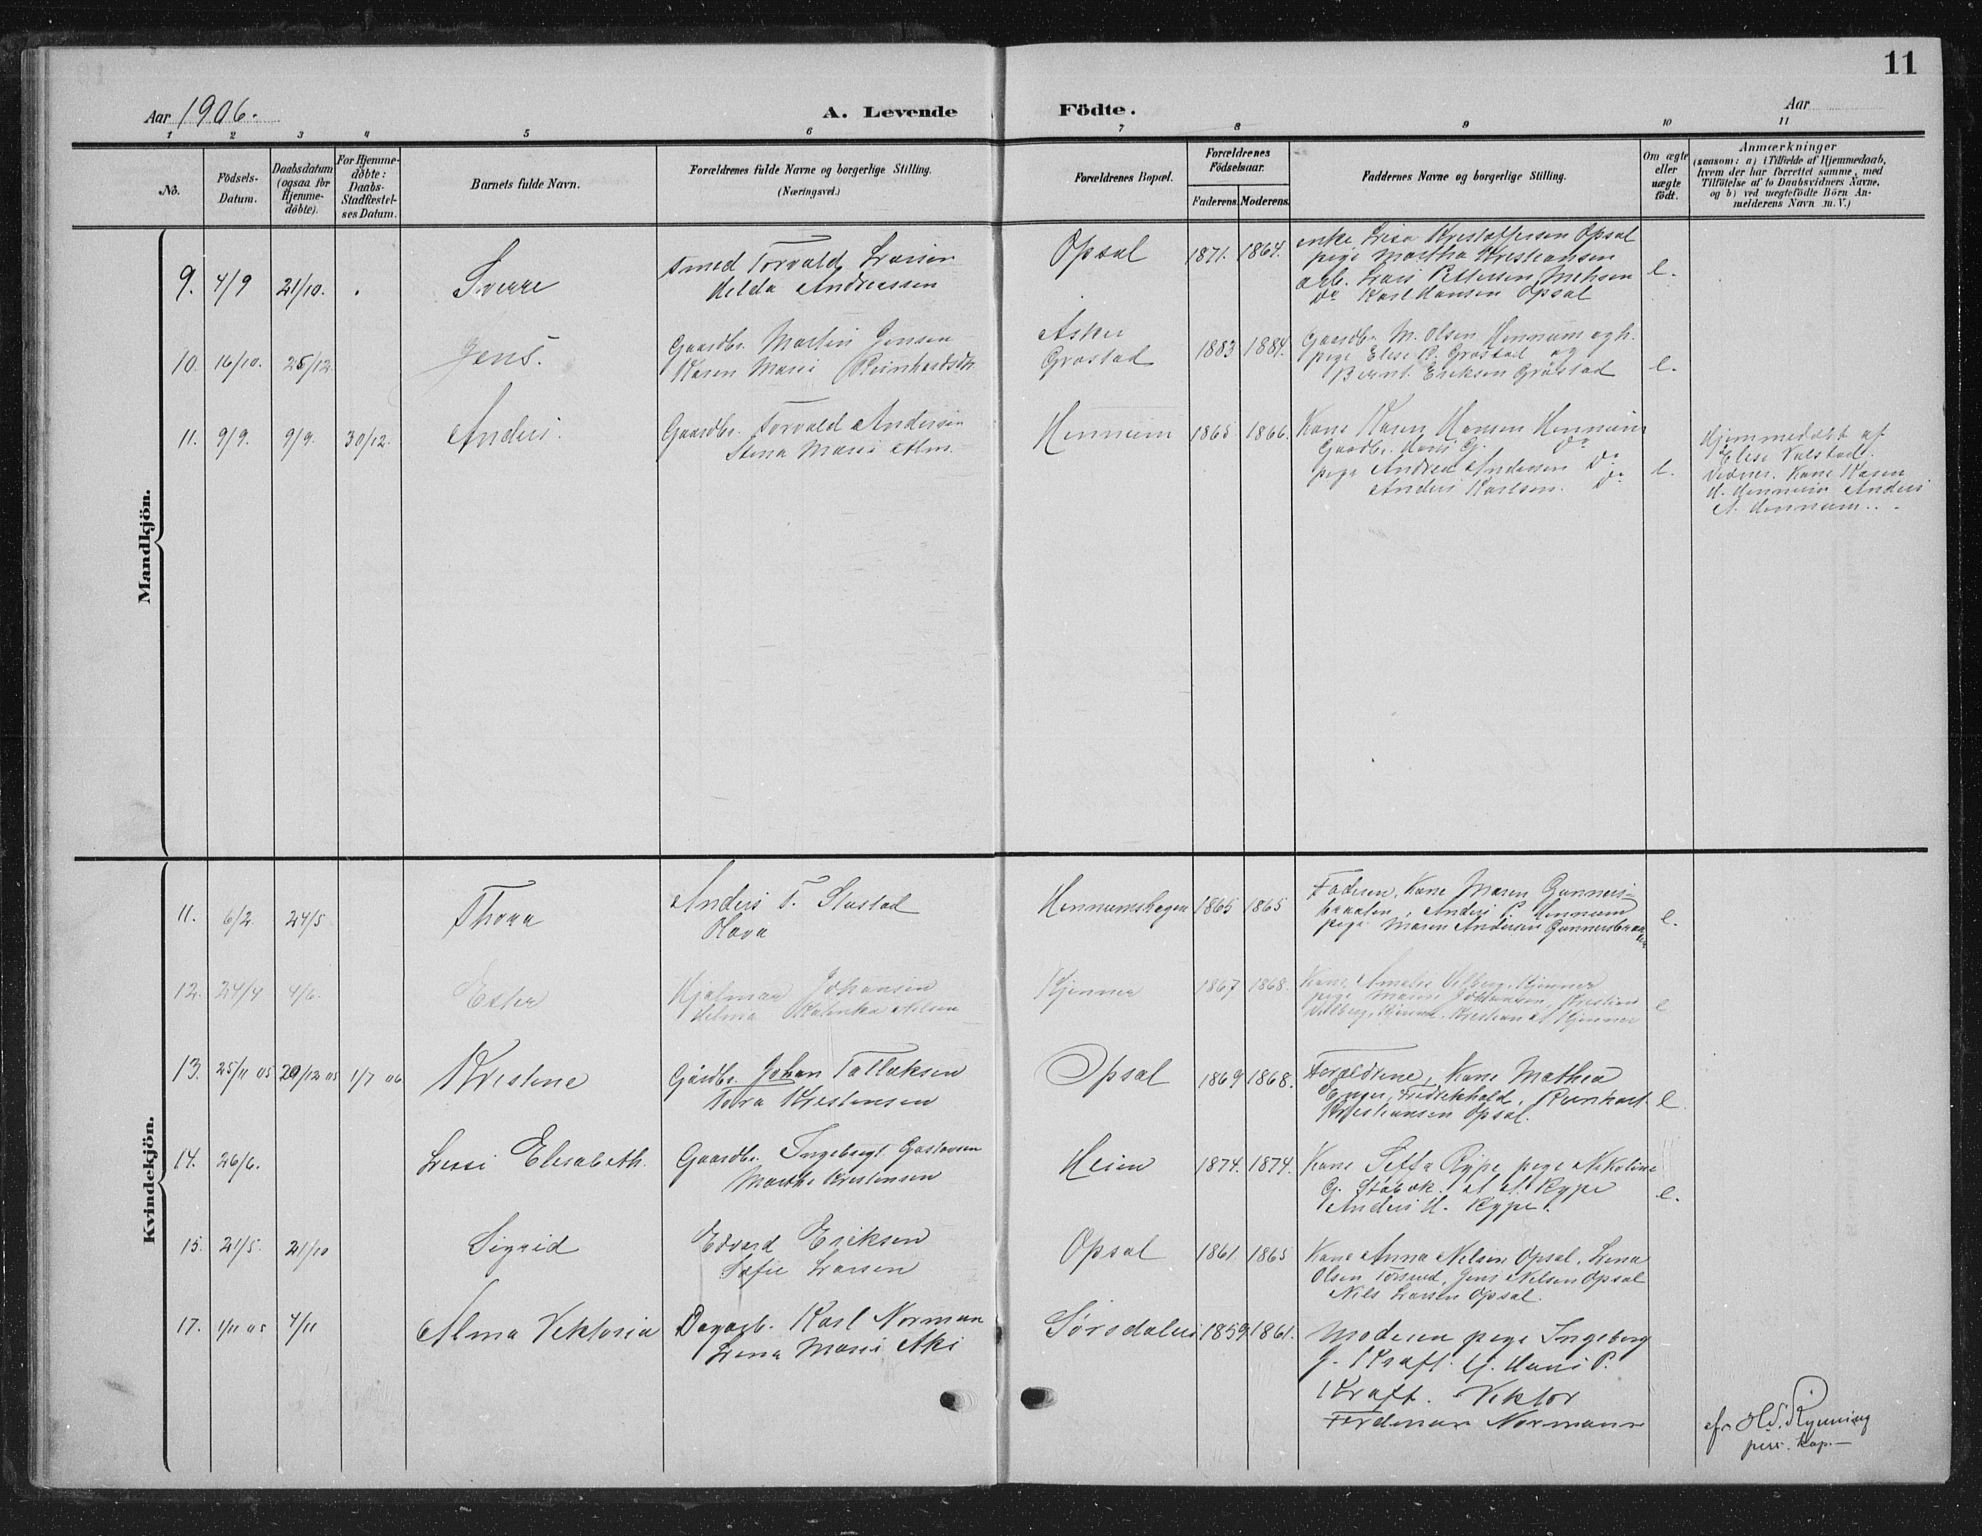 11
Aar 1906.
A. Levende Födte.
Aar
1 2 3 4 5 6 7 8 9 10 11
No.
Födsels-
Datum.
Daabsdatum
(ogsaa for
Hjemme-
döbte).
For Hjemme-
döbte:
Daabs-
Stadfæstel-
ses Datum.
Barnets fulde Navn.
Forældrenes fulde Navne og borgerlige Stilling.
(Næringsvei.)
Forældrenes Bopæl.
Forældrenes
Födselsaar.
Faderens. Moderens.
Faddernes Navne og borgerlige Stilling.
Om ægte
eller
uægte
födt.
Anmærkninger
(saasom: a) i Tilfælde af Hjemmedaab,
hvem der har forrettet samme, med
Tilföielse af to Daabsvidners Navne,
og b) ved uægtefödte Börn An-
melderens Navn m. V.)
Mandkjön.
9. 4/9 21/10. Sverre
Smed Torvald Larsen
Helda Andreassen
Opsal 1871. 1864.
enke Lisa Kristoffersen Opsal
pige Martha Kristiansen
arb. Lars Pettersen
Do Karl Hansen Opsal
e.
10. 16/10. 25/12. Jens.
Gaardbr. Martin Jensen
Karen Marie
Asker
Grostad
1883 1884.
Gaardbr. M. Olsen Hennum og h.
pige Elise B. Grostad og
Bernt Eriksen Gröstad
e.
11. 9/9. 9/9. 30/12. Anders.
Gaardbr. Torvald Andersen
Stena Marie Alm.
Hennum 1865 1866.
Kone Karen Hansen Hennum
Gaardbr. Hans G. Do
pige Andrea Andersen Do
Anders Karlsen. Do
e.
Hjemmedöbt af
Elise Valstad.
Vidner. Kone Karen
H. Hennum Anders
A. Hennum.
Kvindekjön.
11. 6/2 24/5 Thora
Anders T. Stustad
Olava
Hennumshagen 1865 1865
Faderen, Kone Maren Gunners-
braaten, Anders P. Hennum
pige Maren Andersen Gunnersbraa
ten
e.
12. 24/4 4/6. Ester
Hjalmar Johansen
Helma Katinka Nilsen
Kjenner 1867 1868.
Kone Amalie Vilberg, Kjenner
pige Maren Johansen, Kristian
Vilberg, Kristian A. Kjenner
e
13. 25/11 05 29/12 05 1/7 06 Kristine
Gårdbr. Johan Tollaksen
Tora Kristensen
Opsal 1869 1868.
Forældrene, Kone Mathea
Enger, Fredrikhald, Reinhart
Kristiansen Opsal.
e.
14. 26/6. Lissi Elisabeth.
Gaardbr. Ingebregt Gustavsen
Marthe Kristensen
Heien 1874. 1874.
Kone Setta Rype, pige Nikoline
G. Stöbak. A. A. Rype
Anders H. Rype.
e.
15. 21/5. 21/10 Sigrid
Edvard Eriksen
Sofie Larsen
Opsal 1861. 1865
Kone Anna Nilsen Opsal, Lena
Olsen Torsrud, Jens Nilsen Opsal
Nils Larsen Opsal.
17. 1/11 05 4/11 Alma Viktoria
Dagarb. Karl Norman
Lena Marie Aki
Sørsdalen 1859 1861.
Moderen pige Ingeborg
G. Kraft. G. Hans P.
Kraft. Viktor
Ferdinan Normann
Rynning
pers. kap.